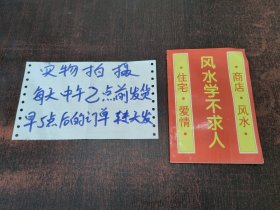 实物拍摄
每天中午2点前发货
早5点后的订单转天发
·商店·风水·
风水学不求人
·住宅·爱情·